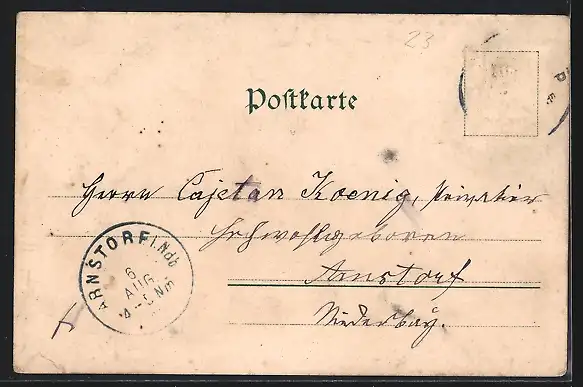 23
Postkarte
P
Herrn Cajetan Koenig, Privatier
Hochwohlgeboren
Arnstorf
Niederbay.
ARNSTORF I. Ndb
6
AUG.
4-5 Nm